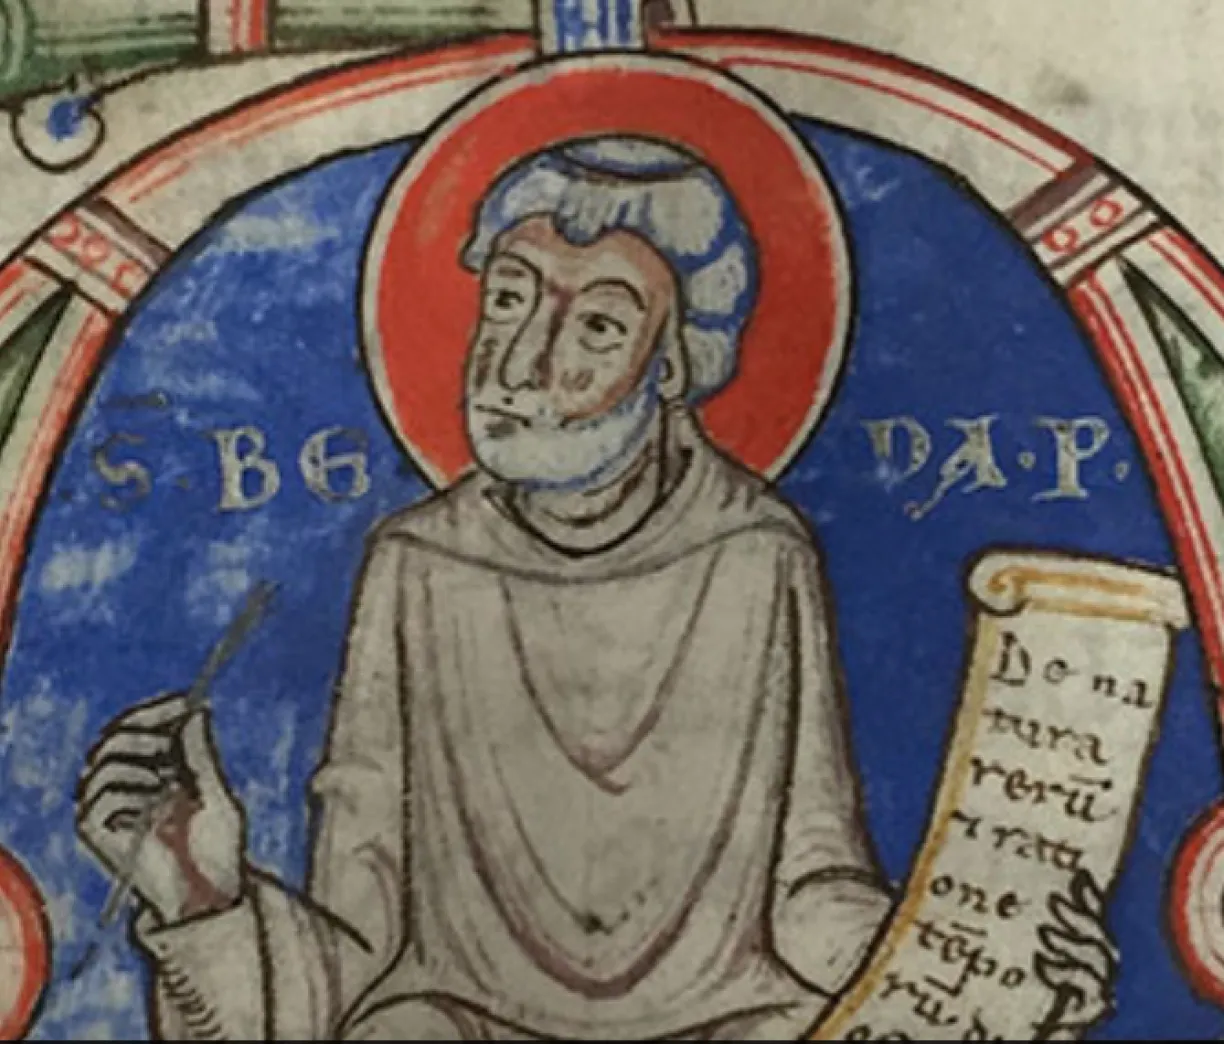 S · BE DA · P ·
De na
tura
rerū
⁊ rati
one
tēpo
rū. di